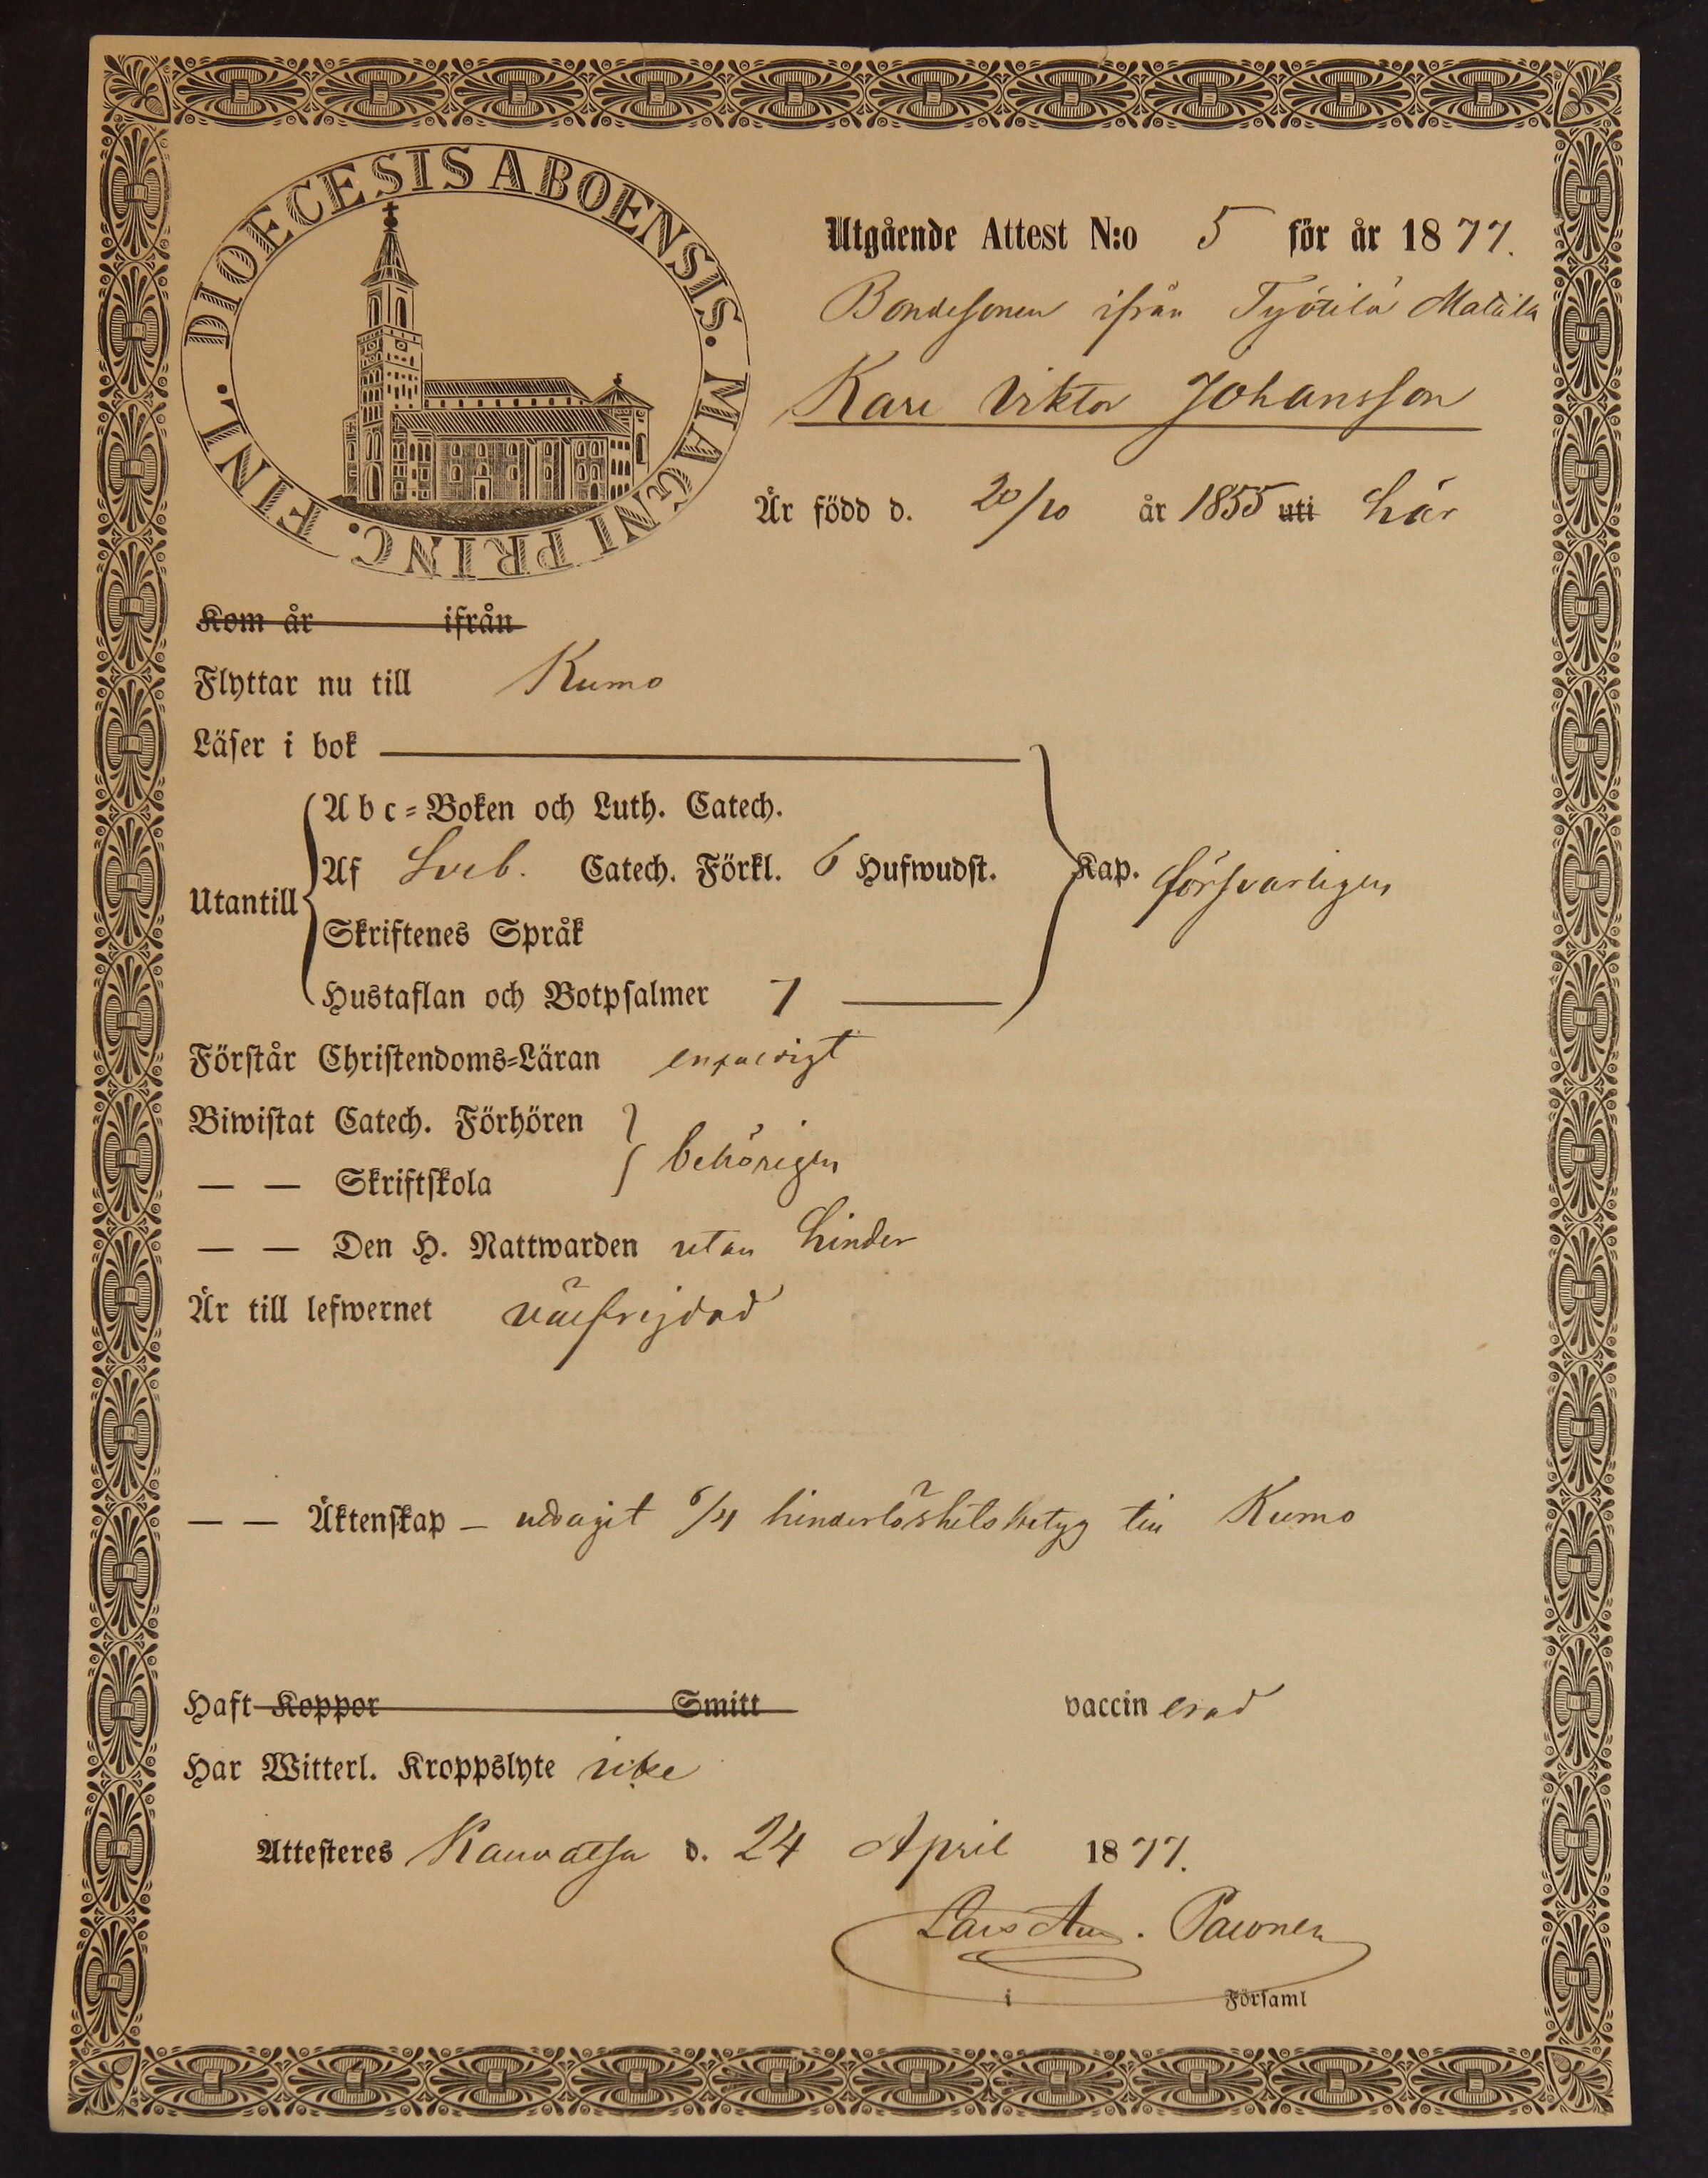 DIOECESIS ABOENSIS. MAGNI PRINC. FINL.
Utgående Attest N:o 5 för år 1877.
Bondesonen ifrån Työtilä Matala
Karl Viktor Johansson
Är född d. 20/10 år 1855 uti här
Kom år ifrån
Flyttar nu till Kumo
Läser i bok
Utantill
Abc=Boken och Luth. Catech.
Af Sveb. Catech. Förkl. 6 Hufwudst.
Skriftenes Språk
Hustaflan och Botpsalmer 7
Kap. försvarligen
Förstår Christendoms=Läran enfaldigt
Biwistat Catech. Förhören
— — Skriftskola
behörigen
— — Den H. Nattwarden utan hinder
Är till lefwernet välfrejdad
— — Äktenskap – uttagit 6/4 hinderlöshetsbetyg till Kumo
Haft Koppor Smitt vaccinerad
Har Witterl. Kroppslyte icke
Attesteres Kauvatsa d. 24 April 1877.
Lars . Paronen
i Församl